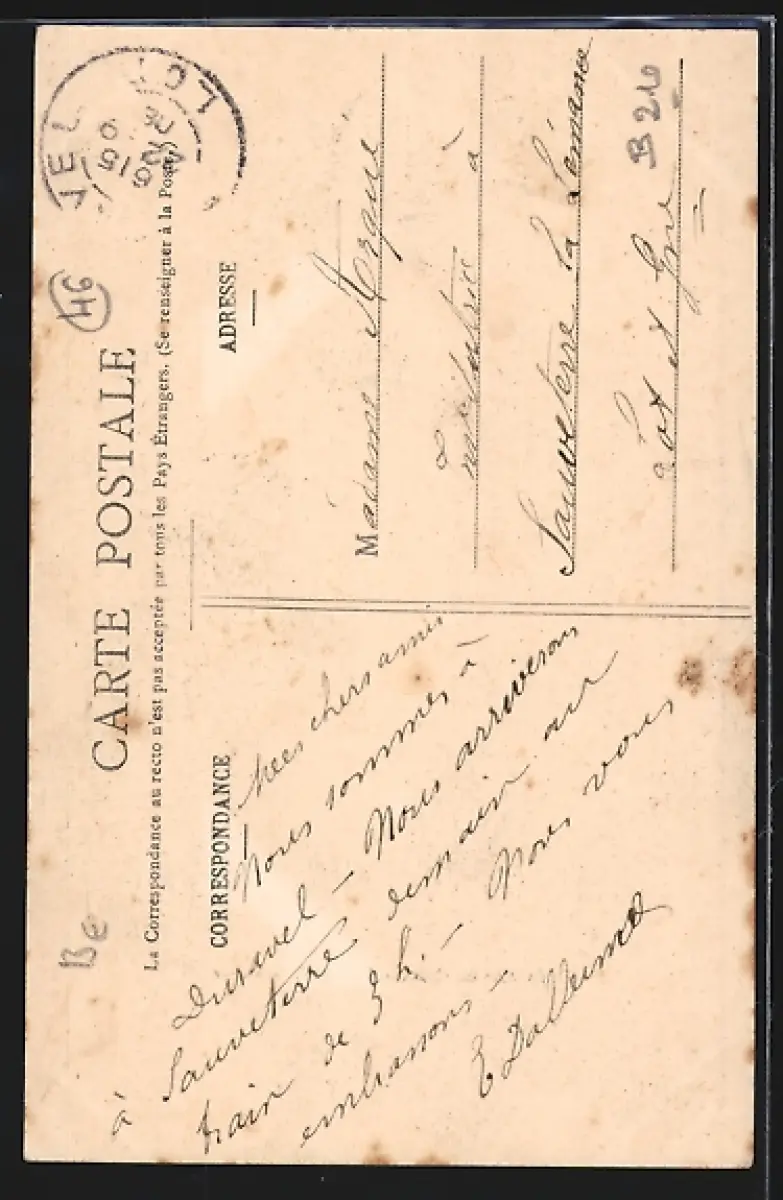 CARTE POSTALE
La Correspondance au recto n'est pas acceptée par tous les Pays Étrangers. (Se renseigner à la Poste)
46
Be
CORRESPONDANCE
Mes chers amis
Nous sommes à
Duravel – Nous arriverons
à Sauveterre demain au
train de 3 h. – Nous vous
embrassons –
ADRESSE
Madame
Institutrice à
Sauveterre la Lémance
Lot et Gne
B 20